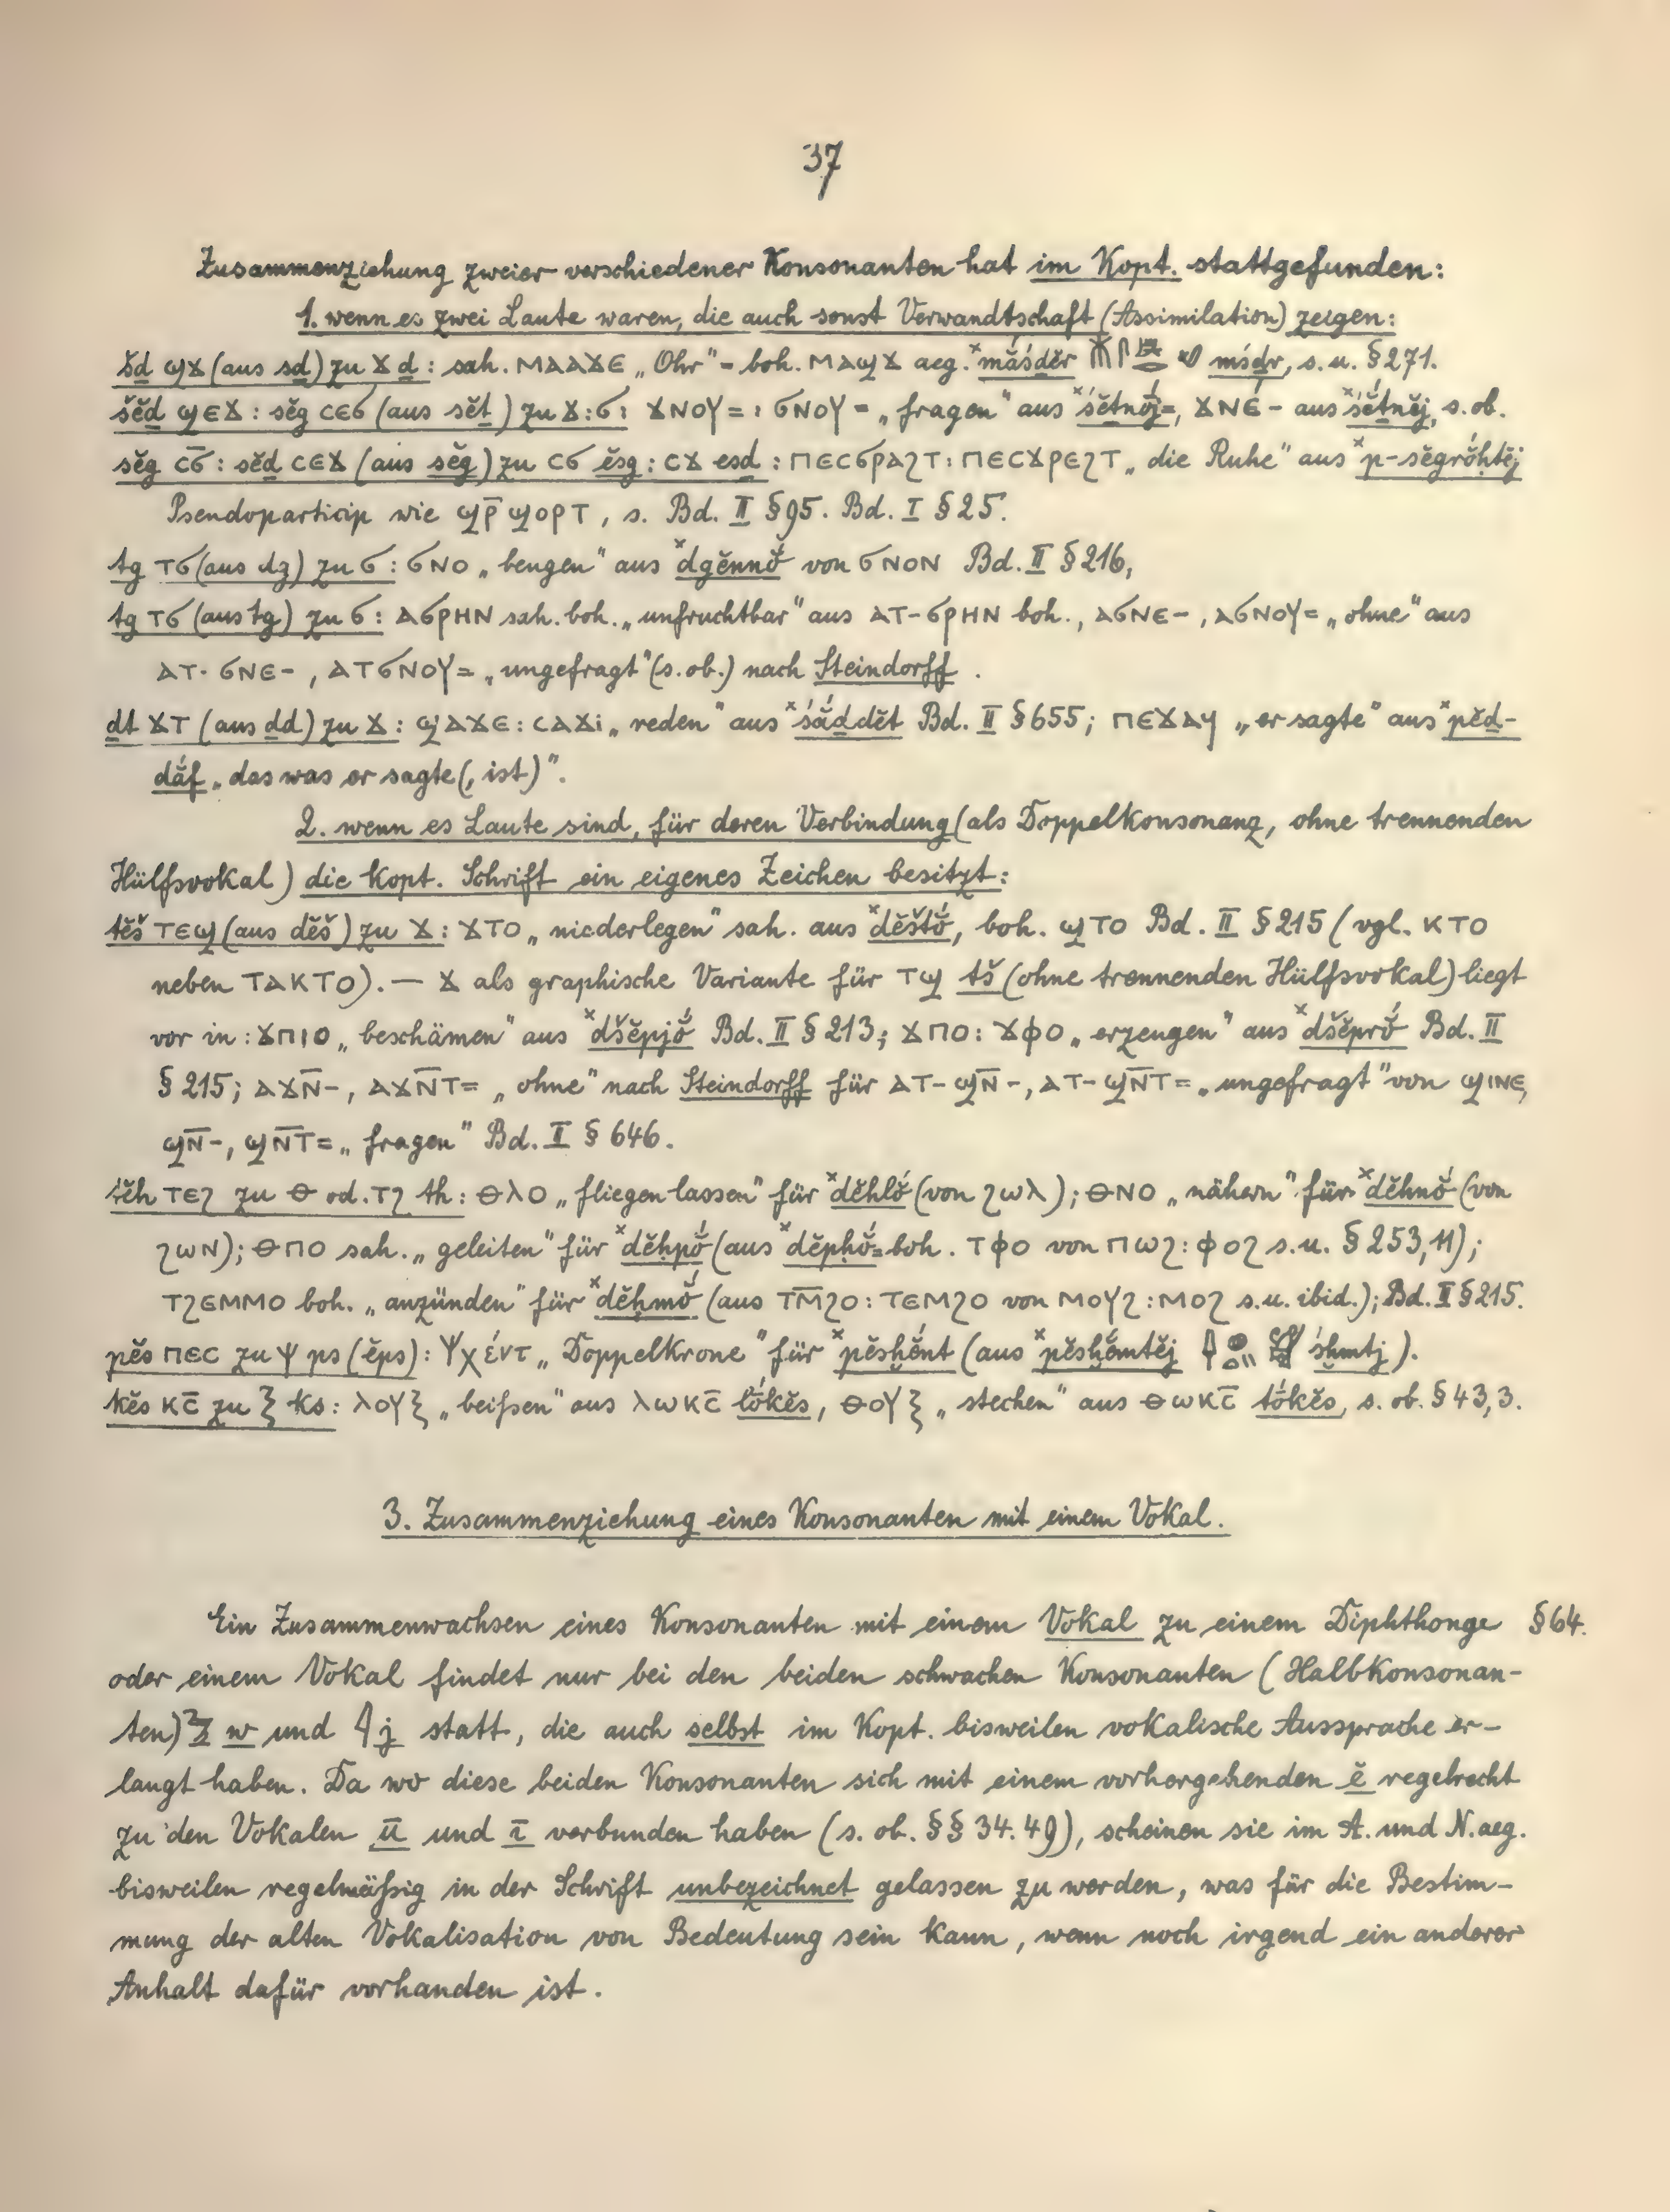 37
Zusammenziehung zweier verschiedener Konsonanten hat im Kopt. stattgefunden:
1. wenn es zwei Laute waren, die auch sonst Verwandtschaft (Assimilation) zeigen:
šḏ ϣϫ (aus sḏ) zu ϫ ḏ : sah. ⲘⲀⲀϪⲈ „Ohr" = boh. ⲘⲀϢϪ aeg. ˣmắśḏĕr 𓄟𓋴 mśḏr, s. u. § 271.
šĕḏ ϢⲈϪ : sĕg ⲤⲈϬ (aus sĕṯ) zu ϫ : ϭ : ϪⲚⲞⲨ= : ϬⲚⲞⲨ= „fragen" aus ˣśĕṯnój=, ϪⲚⲈ- aus ˣśĕṯnĕj, s. ob.
sĕg Ⲥ̅Ϭ̅ : sĕḏ ⲤⲈϪ (aus sĕg) zu ⲤϬ ĕsg : ⲤϪ esḏ : ⲠⲈⲤϬⲢⲀϨⲦ : ⲠⲈⲤϪⲢⲈϨⲦ „die Ruhe" aus ˣp-sĕgrắḥtĕj
Pseudoparticip wie ϢⲢ̅ ϢⲞⲢⲦ, s. Bd. II § 95. Bd. I § 25.
tg ⲦϬ (aus dg) zu Ϭ : ϬⲚⲞ „beugen" aus ˣdgĕnnŏ́ von ϬⲚⲞⲚ Bd. II § 216,
tg ⲦϬ (aus tg) zu Ϭ : ⲀϬⲢⲎⲚ sah. boh. „unfruchtbar" aus ⲀⲦ-ϬⲢⲎⲚ boh., ⲀϬⲚⲈ-, ⲀϬⲚⲞⲨ= „ohne" aus
ⲀⲦ-ϬⲚⲈ-, ⲀⲦϬⲚⲞⲨ= „ungefragt" (s. ob.) nach Steindorff.
ḏt ϪⲦ (aus ḏd) zu Ϫ : ϢⲀϪⲈ : ⲤⲀϪⲒ „reden" aus ˣśắḏdĕt Bd. II § 655; ⲠⲈϪⲀϤ „er sagte" aus ˣpĕḏ-
dắf „das was er sagte (, ist)".
2. wenn es Laute sind, für deren Verbindung (als Doppelkonsonanz, ohne trennenden
Hülfsvokal) die kopt. Schrift ein eigenes Zeichen besitzt:
tĕš ⲦⲈϢ (aus dĕš) zu Ϫ : ϪⲦⲞ „niederlegen" sah. aus ˣdĕštŏ́, boh. ϢⲦⲞ Bd. II § 215 (vgl. ⲔⲦⲞ
neben ⲦⲀⲔⲦⲞ). — Ϫ als graphische Variante für ⲦϢ tš (ohne trennenden Hülfsvokal) liegt
vor in : ϪⲠⲒⲞ „beschämen" aus ˣdšĕpjŏ́ Bd. II § 213; ϪⲠⲞ : ϪⲪⲞ „erzeugen" aus ˣdšĕprŏ́ Bd. II
§ 215; ⲀϪⲚ̅-, ⲀϪⲚ̅Ⲧ= „ohne" nach Steindorff für ⲀⲦ-ϢⲚ̅-, ⲀⲦ-ϢⲚ̅Ⲧ= „ungefragt" von ϢⲒⲚⲈ,
ϢⲚ̅-, ϢⲚ̅Ⲧ= „fragen" Bd. I § 646.
tĕh ⲦⲈϨ zu Ⲑ od. ⲦϨ th : ⲐⲖⲞ „fliegen lassen" für ˣdĕhlŏ́ (von ϨⲰⲖ); ⲐⲚⲞ „nähern" für ˣdĕhnŏ́ (von
ϨⲰⲚ); ⲐⲠⲞ sah. „geleiten" für ˣdĕḥpŏ́ (aus ˣdĕpḥŏ́ = boh. ⲦⲪⲞ von ⲠⲰϨ : ⲪⲞϨ s. u. § 253, 11);
ⲦϨⲈⲘⲘⲞ boh. „anzünden" für ˣdĕḥmŏ́ (aus ⲦⲘ̅ϨⲞ : ⲦⲈⲘϨⲞ von ⲘⲞⲨϨ : ⲘⲞϨ s. u. ibid.); Bd. II § 215.
pĕs ⲠⲈⲤ zu Ψ ps (ĕps) : Ψχέντ „Doppelkrone" für ˣpĕsḫĕ́nt (aus ˣpĕsḫĕ́mtĕj śḫmtj).
kĕs ⲔⲤ̅ zu Ⲝ ks : ⲖⲞⲨⲜ „beißen" aus ⲖⲰⲔⲤ̅ lṓkĕs, ⲐⲞⲨⲜ „stechen" aus ⲐⲰⲔⲤ̅ tṓkĕs, s. ob. § 43, 3.
3. Zusammenziehung eines Konsonanten mit einem Vokal.
Ein Zusammenwachsen eines Konsonanten mit einem Vokal zu einem Diphthonge § 64.
oder einem Vokal findet nur bei den beiden schwachen Konsonanten (Halbkonsonan-
ten) 𓅱 w und 𓇋 j statt, die auch selbst im Kopt. bisweilen vokalische Aussprache er-
langt haben. Da wo diese beiden Konsonanten sich mit einem vorhergehenden ĕ regelrecht
zu den Vokalen ū und ī verbunden haben (s. ob. §§ 34. 49), scheinen sie im A. und N. aeg.
bisweilen regelmäßig in der Schrift unbezeichnet gelassen zu werden, was für die Bestim-
mung der alten Vokalisation von Bedeutung sein kann, wenn noch irgend ein anderer
Anhalt dafür vorhanden ist.